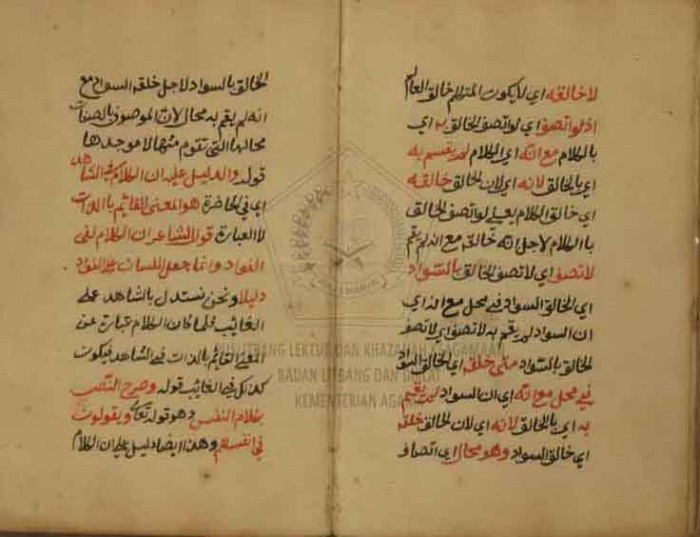 لا خالقه اي لا يكون المتكلم خالق العالم
اذ لو اتصف اي لو اتصف الخالق به اي
بالكلام مع انه اي الكلام لم يقسم به
اي بالخالق لانه اي لان الخالق خالقه
اي خالق الكلام يعني لو اتصف الخالق
بالكلام لاجل انه خالقه مع انه لم يقم
لا تصف اي لا تصف الخالق بالسواد
اي الخالق السواد في محل مع انه اي
ان السواد لم يقم به لا تصف اي لا تصف
الخالق بالسواد متى خلق اي الخالق السواد
في محل مع انه اي ان السواد لم يقم
به اي بالخالق لانه اي لان الخالق خلقه
اي خالق السواد وهو محال اي اتصاف
الخالق بالسواد لاجل خلقه السواد مع
انه لم يقم به محال لان الموصوف بالصفات
محالها التي تقوم منها لا موجدها
قوله والدليل على ان الكلام في الشاهد
اي في الحاضرة هو المعنى القائم بالذات
لا العبارة قول الشاعر ان الكلام لفى
الفواد وانما جعل اللسان على الفواد
دليلا ونحن نستدل بالشاهد على
الغائب فلما كان الكلام عبارة عن
المعنى القائم بالذات في الشاهد فيكون
كذلك في الغائب قوله وصرح النص
بكلام النفس وهو قوله تعالى ويقولون
في انفسهم وهذا ايضا دليل على ان الكلام
PUSLITBANG LEKTUR DAN KHAZANAH KEAGAMAAN
BADAN LITBANG DAN DIKLAT
KEMENTERIAN AGAMA